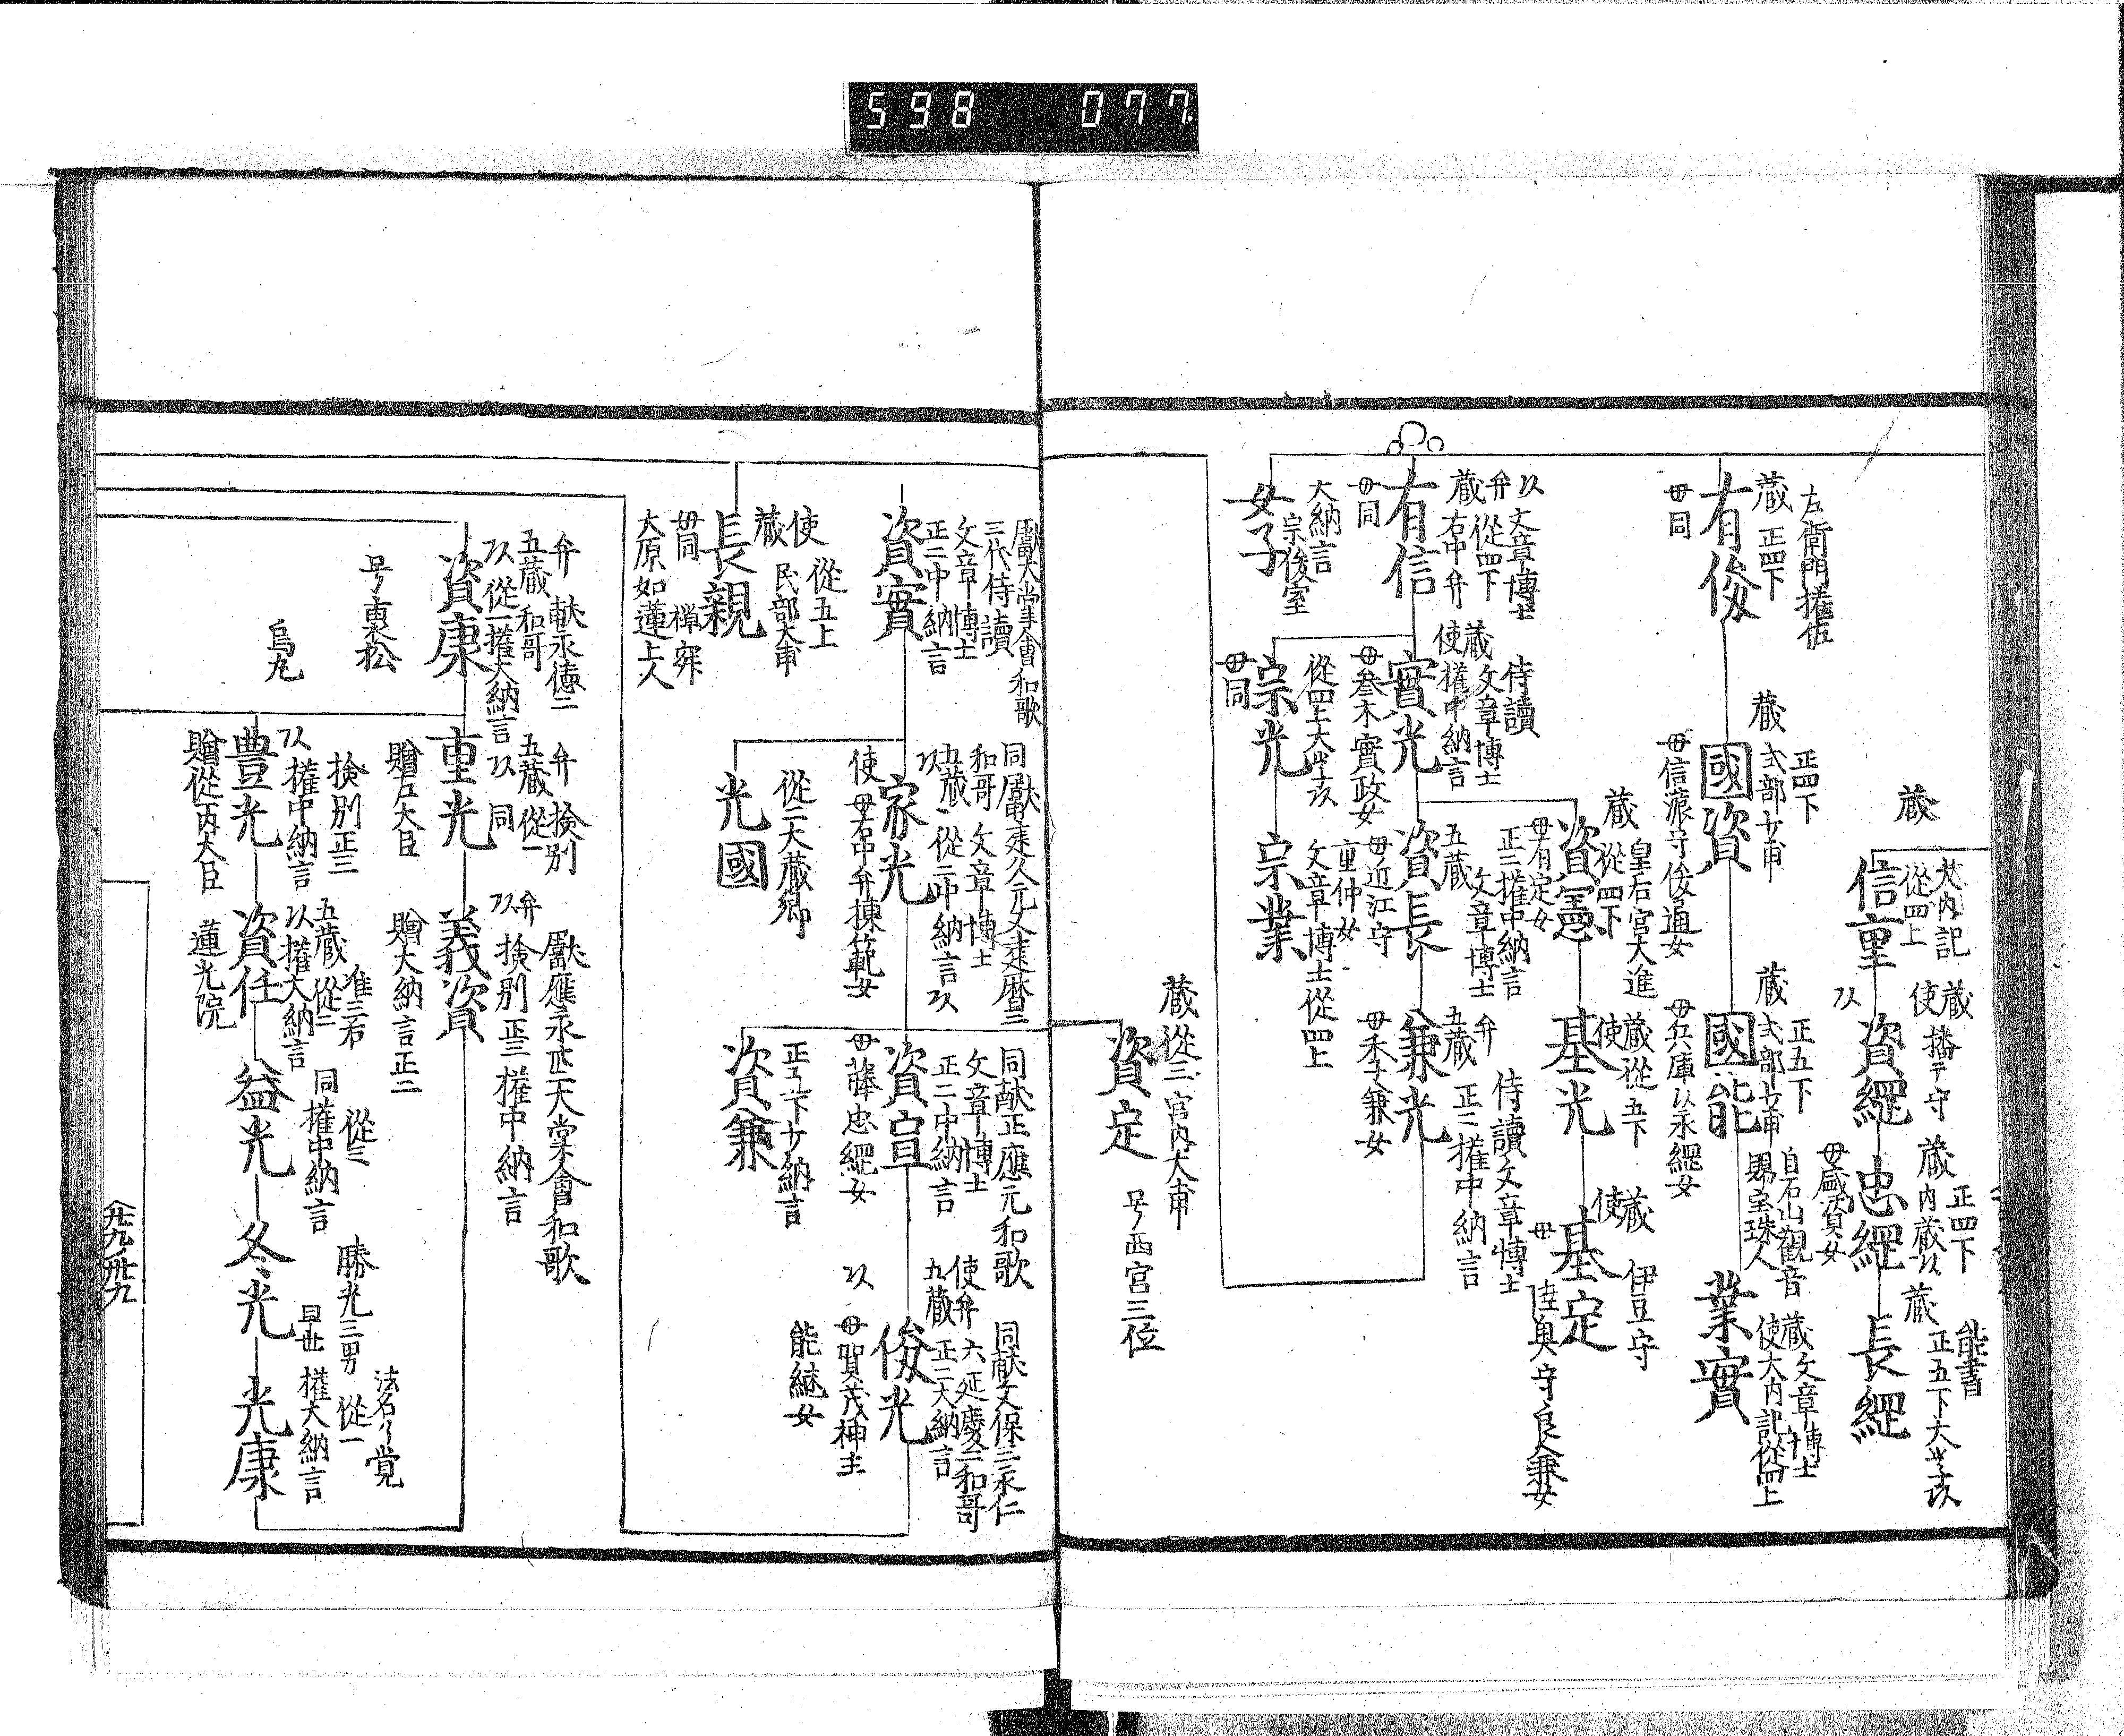 598 077
蔵
大内記
從四上
信重
蔵
使
播广守
以
資經
蔵 正四下
内蔵以
忠經
母盛資女
蔵 能書
正五下
長經
左衛門権佐
蔵 正四下
有俊
母同
正四下
蔵 式部少甫
國資
母信濃守俊通女
正五下
蔵 式部少甫
國能
自石山観音
賜宝珠人
母兵庫以永經女
蔵文章博士
使大内記從四上
業實
以文章博士
弁從四下
蔵右中弁
有信
母同
侍讀
蔵文章博士
使権中納言
實光
母参木實政女
皇右宮大進
蔵從四下
資憲
母有定女
蔵從五下
使
基光
蔵 伊豆守
使
基定
母 陸奥守良兼女
正二権中納言
五蔵 文章博士
資長
母近江守
重仲女
侍讀文章博士
弁 正二権中納言
五蔵
兼光
母季兼女
宗光
母同
文章博士從四上
宗業
大納言
宗俊室
女子
蔵從三宮内大甫
号西宮三位
資定
獻大掌會和歌
三代侍讀
文章博士
正二中納言
資實
同獻建久元文建暦三
和哥 文章博士
五蔵 從二中納言以
家光
使 母右中弁棟範女
同献正應元和歌
文章博士
正二中納言
資宣
母藤忠經女
同献文保二永仁
六延慶二和哥
使弁 正二大納言
五蔵
俊光
以 母賀茂神主
能継女
使 從五上
蔵 民部大甫
長親
母同 禅寂
大原如蓮上人
從二大蔵卿
光國
正五下少納言
資兼
弁 献永徳二
五蔵 和哥
以從一権大納言
資康
弁 検別
五蔵 從一
以 同
重光
贈左大臣
獻應永廿二大掌會和歌
弁 検別正三権中納言
以
義資
贈大納言正二
号裏松
烏丸
検別正三
以権中納言
豊光
贈從内大臣
准三右
五蔵從二
以権大納言
資任
蓮光院
從二
同権中納言
益光
勝光三男
早世
冬光
法名了覚
從一
権大納言
光康